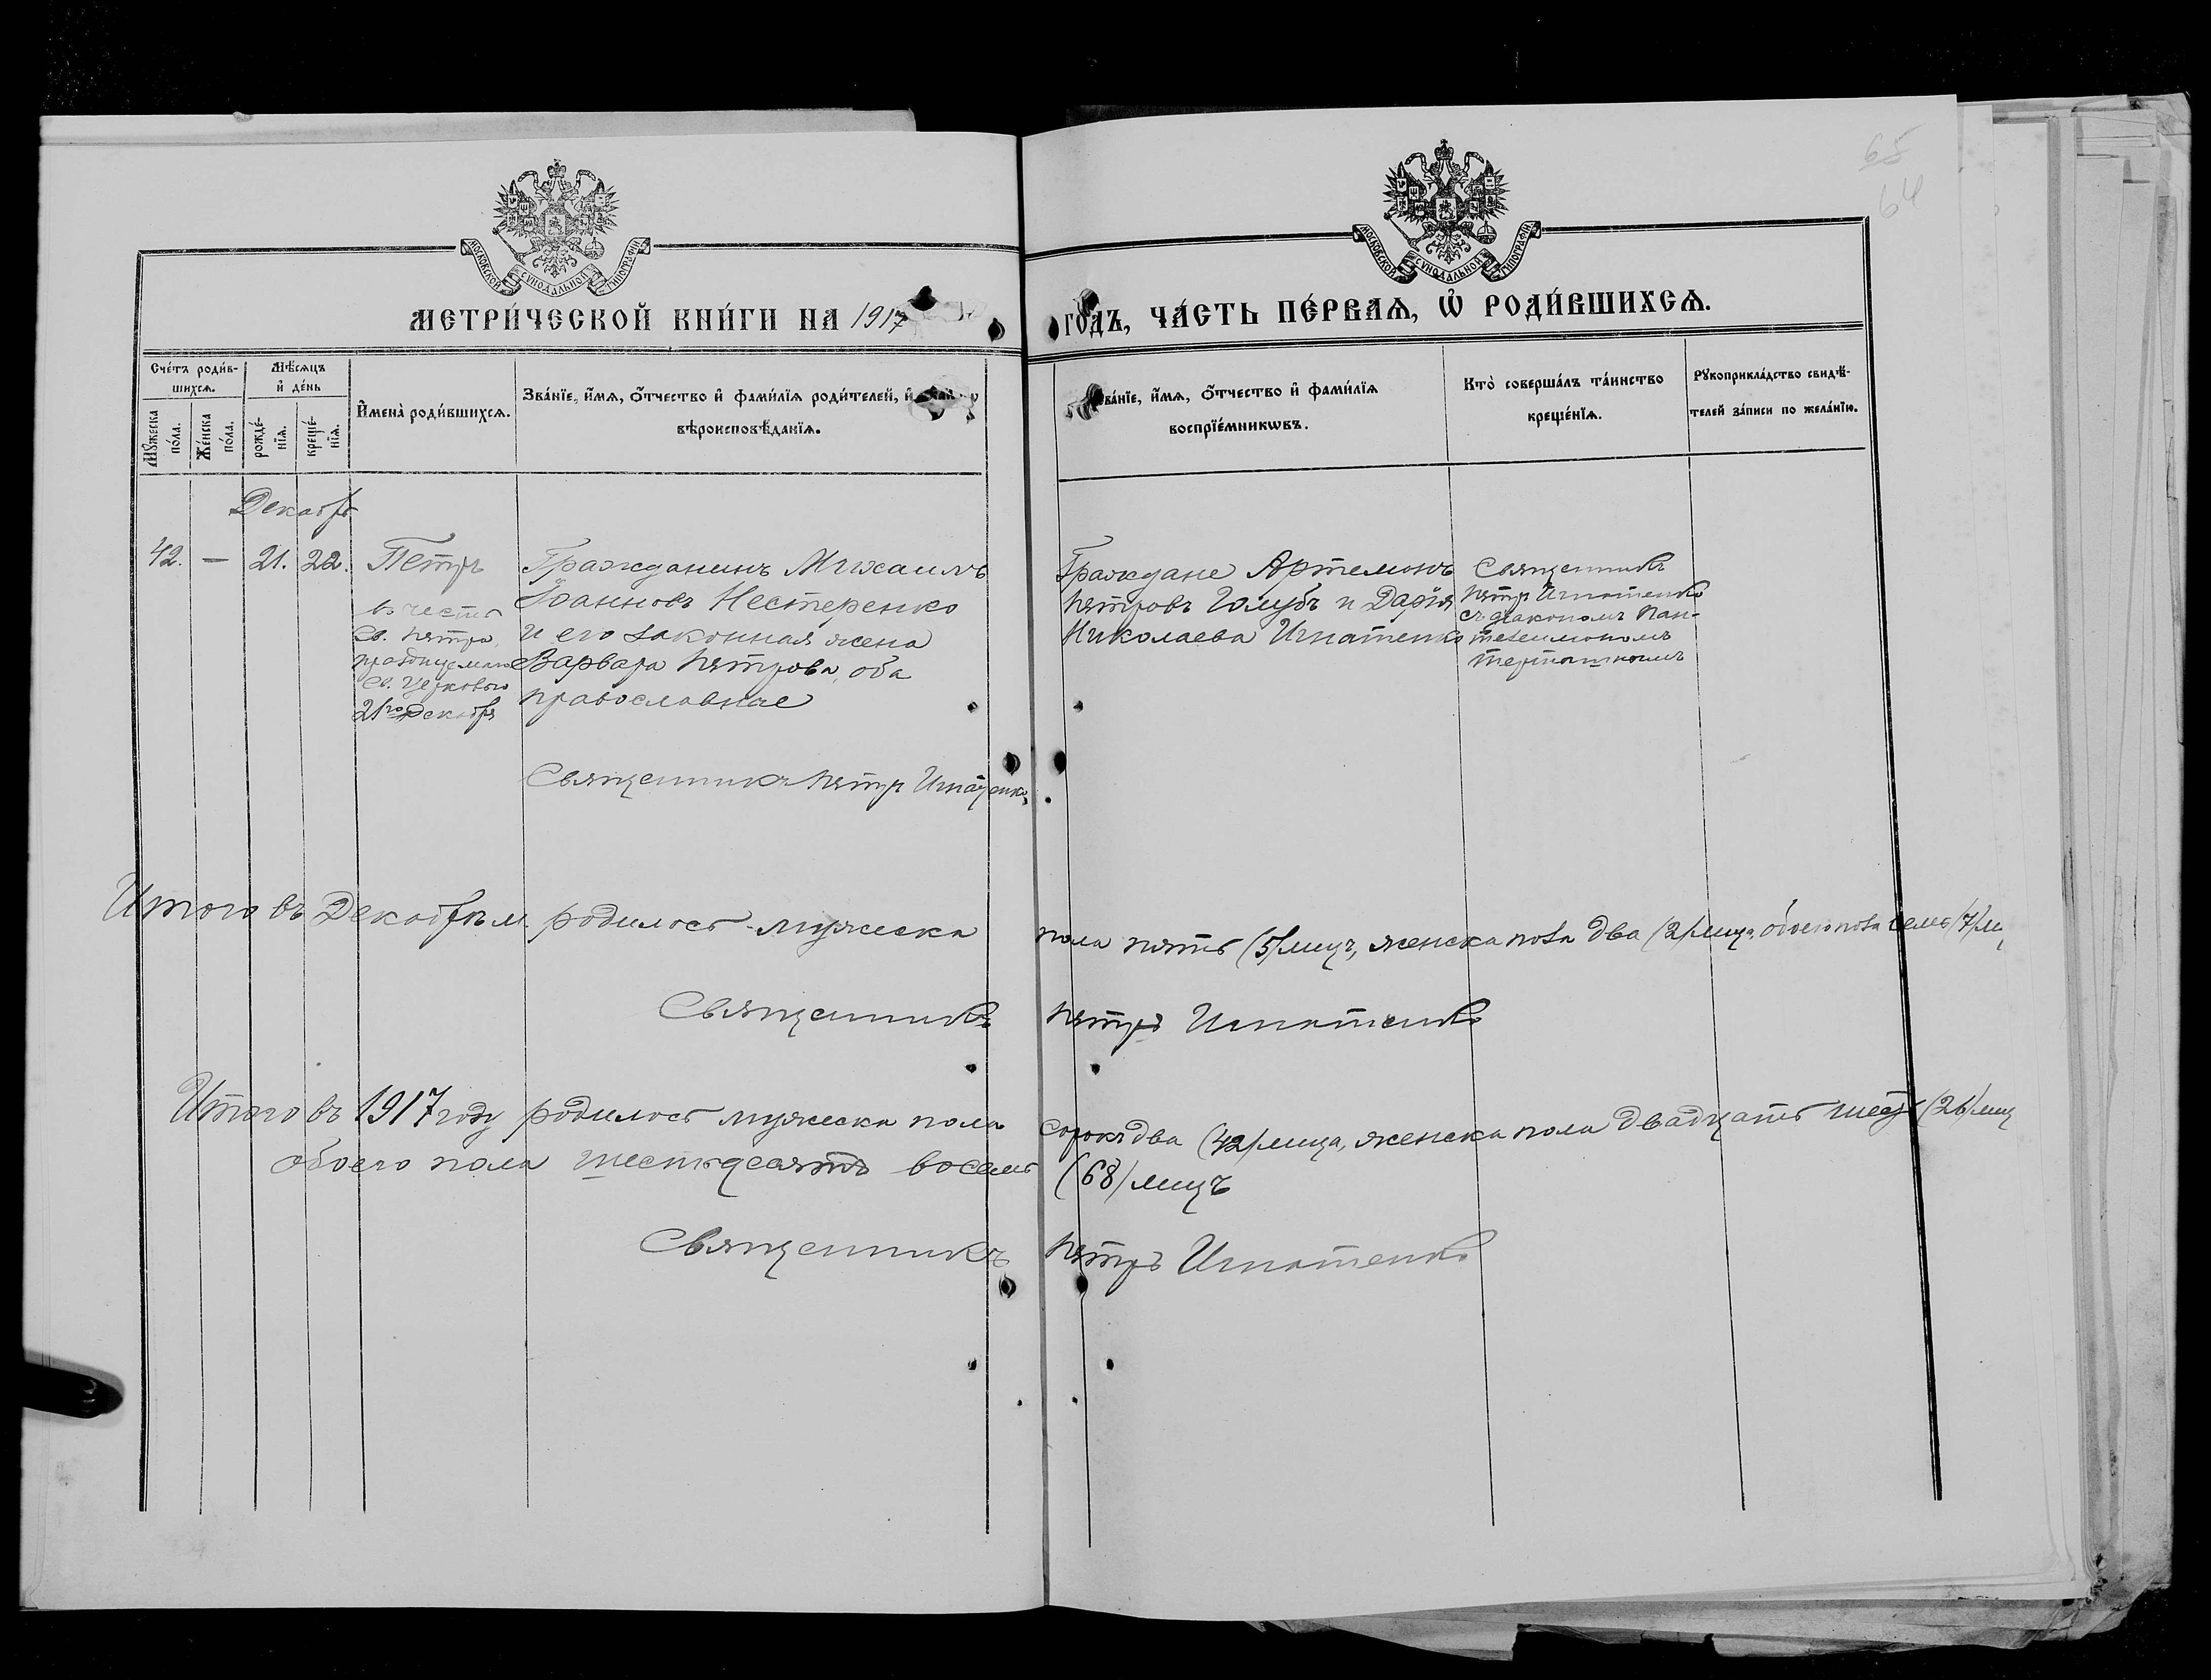 65
64
МОСКОВСКОЙ СѴНОДАЛЬНОЙ ТИПОГРАФІИ
МОСКОВСКОЙ СѴНОДАЛЬНОЙ ТИПОГРАФІИ
МЕТРИ́ЧЕСКОЙ КНИ́ГИ НА 1917
ГО́ДЪ, ЧА́СТЬ ПЕ́РВАѦ, Ѡ҆ РОДИ́ВШИХСѦ.
Сче́тъ роди́в-
шихсѧ.
Мꙋ́жеска
по́ла.
Же́нска
по́ла.
Мѣ́сѧцъ
и҆ де́нь
рожде́-
нїѧ.
креще́-
нїѧ.
И҆мена̀ роди́вшихсѧ.
Зва́нїе, и҆́мѧ, ѻ҆́тчество и҆ фамѝлїѧ роди́телей, и҆
вѣроисповѣ́данїѧ.
Зва́нїе, и҆́мѧ, ѻ҆́тчество и҆ фамѝлїѧ
воспрїе́мникѡвъ.
Кто̀ соверша́лъ та́инство
креще́нїѧ.
Рꙋкоприкла́дство свидѣ́-
телей за́писи по жела́нїю.
Декабрь
42. — 21. 22.
Петръ
въ честь
Св. Петра,
празднуемаго
Св. Церковью
21го Декабря
Гражданинъ Михаилъ
Іоанновъ Нестеренко
и его законная жена
Варвара Петрова, оба
православные
Граждане Артемонъ
Петровъ Голубъ и Дарія
Николаева Игнатенко
Священникъ
Петръ Игнатенко
съ діакономъ Пан-
телеимономъ
Священникъ Петръ Игнатенко
Итого въ Декабрѣ м. родилось мужеска пола пять (5) лицъ, женска пола два (2) лица, обоего пола семь (7) ли
Священникъ Петръ Игнатенко
Итого въ 1917 году родилось мужеска пола сорокъ два (42) лица, женска пола двадцать шесть (26) лиц
обоего пола шестьдесятъ восемь (68) лицъ
Священникъ Петръ Игнатенко